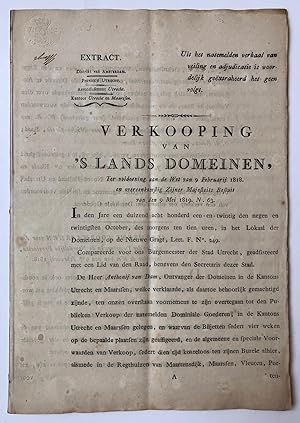 EXTRACT.
District van Amsterdam.
Provincie Utrecht.
Arrondissement Utrecht.
Kantons Utrecht en Maarssen.
Uit het notemelden verhaal van
veiling en adjudicatie is woor-
delijk geëxtraheerd het geen
volgt.
VERKOOPING
VAN
'S LANDS DOMEINEN,
Ter voldoening aan de Wet van 9 Februarij 1818.
en overeenkomstig Zijner Majesteits Besluit
van den 9 Mei 1819. N. 63.
In den Jare een duizend acht honderd een-en-twintig den negen en
twintigsten October, des morgens ten tien uren, in het Lokaal der
Domeinen, op de Nieuwe Gragt, Lett. F. No. 249.
Compareerde voor ons Burgemeester der Stad Utrecht, geadsisteerd
met een Lid van den Raad, benevens den Secretaris dezer Stad.
De Heer Anthonij van Dam, Ontvanger der Domeinen in de Kantons
Utrecht en Maarssen, welke verklaarde, als daartoe behoorlijk gemachtigd
zijnde, ten onzen overstaan voornemens te zijn overtegaan tot den Pu-
blieken Verkoop der natemelden Dominiale Goederen, in de Kantons
Utrecht en Maarssen gelegen, en waarvan de Biljetten sedert vier weken
op de bepaalde plaatsen zijn geaffigeerd, en de algemeene en speciale Voor-
waarden van Verkoop, sedert dien tijd kosteloos ten zijnen Burele ter
alsmede in de Regthuizen van Maartensdijk, Maarssen, Vleuten,
A
ten-